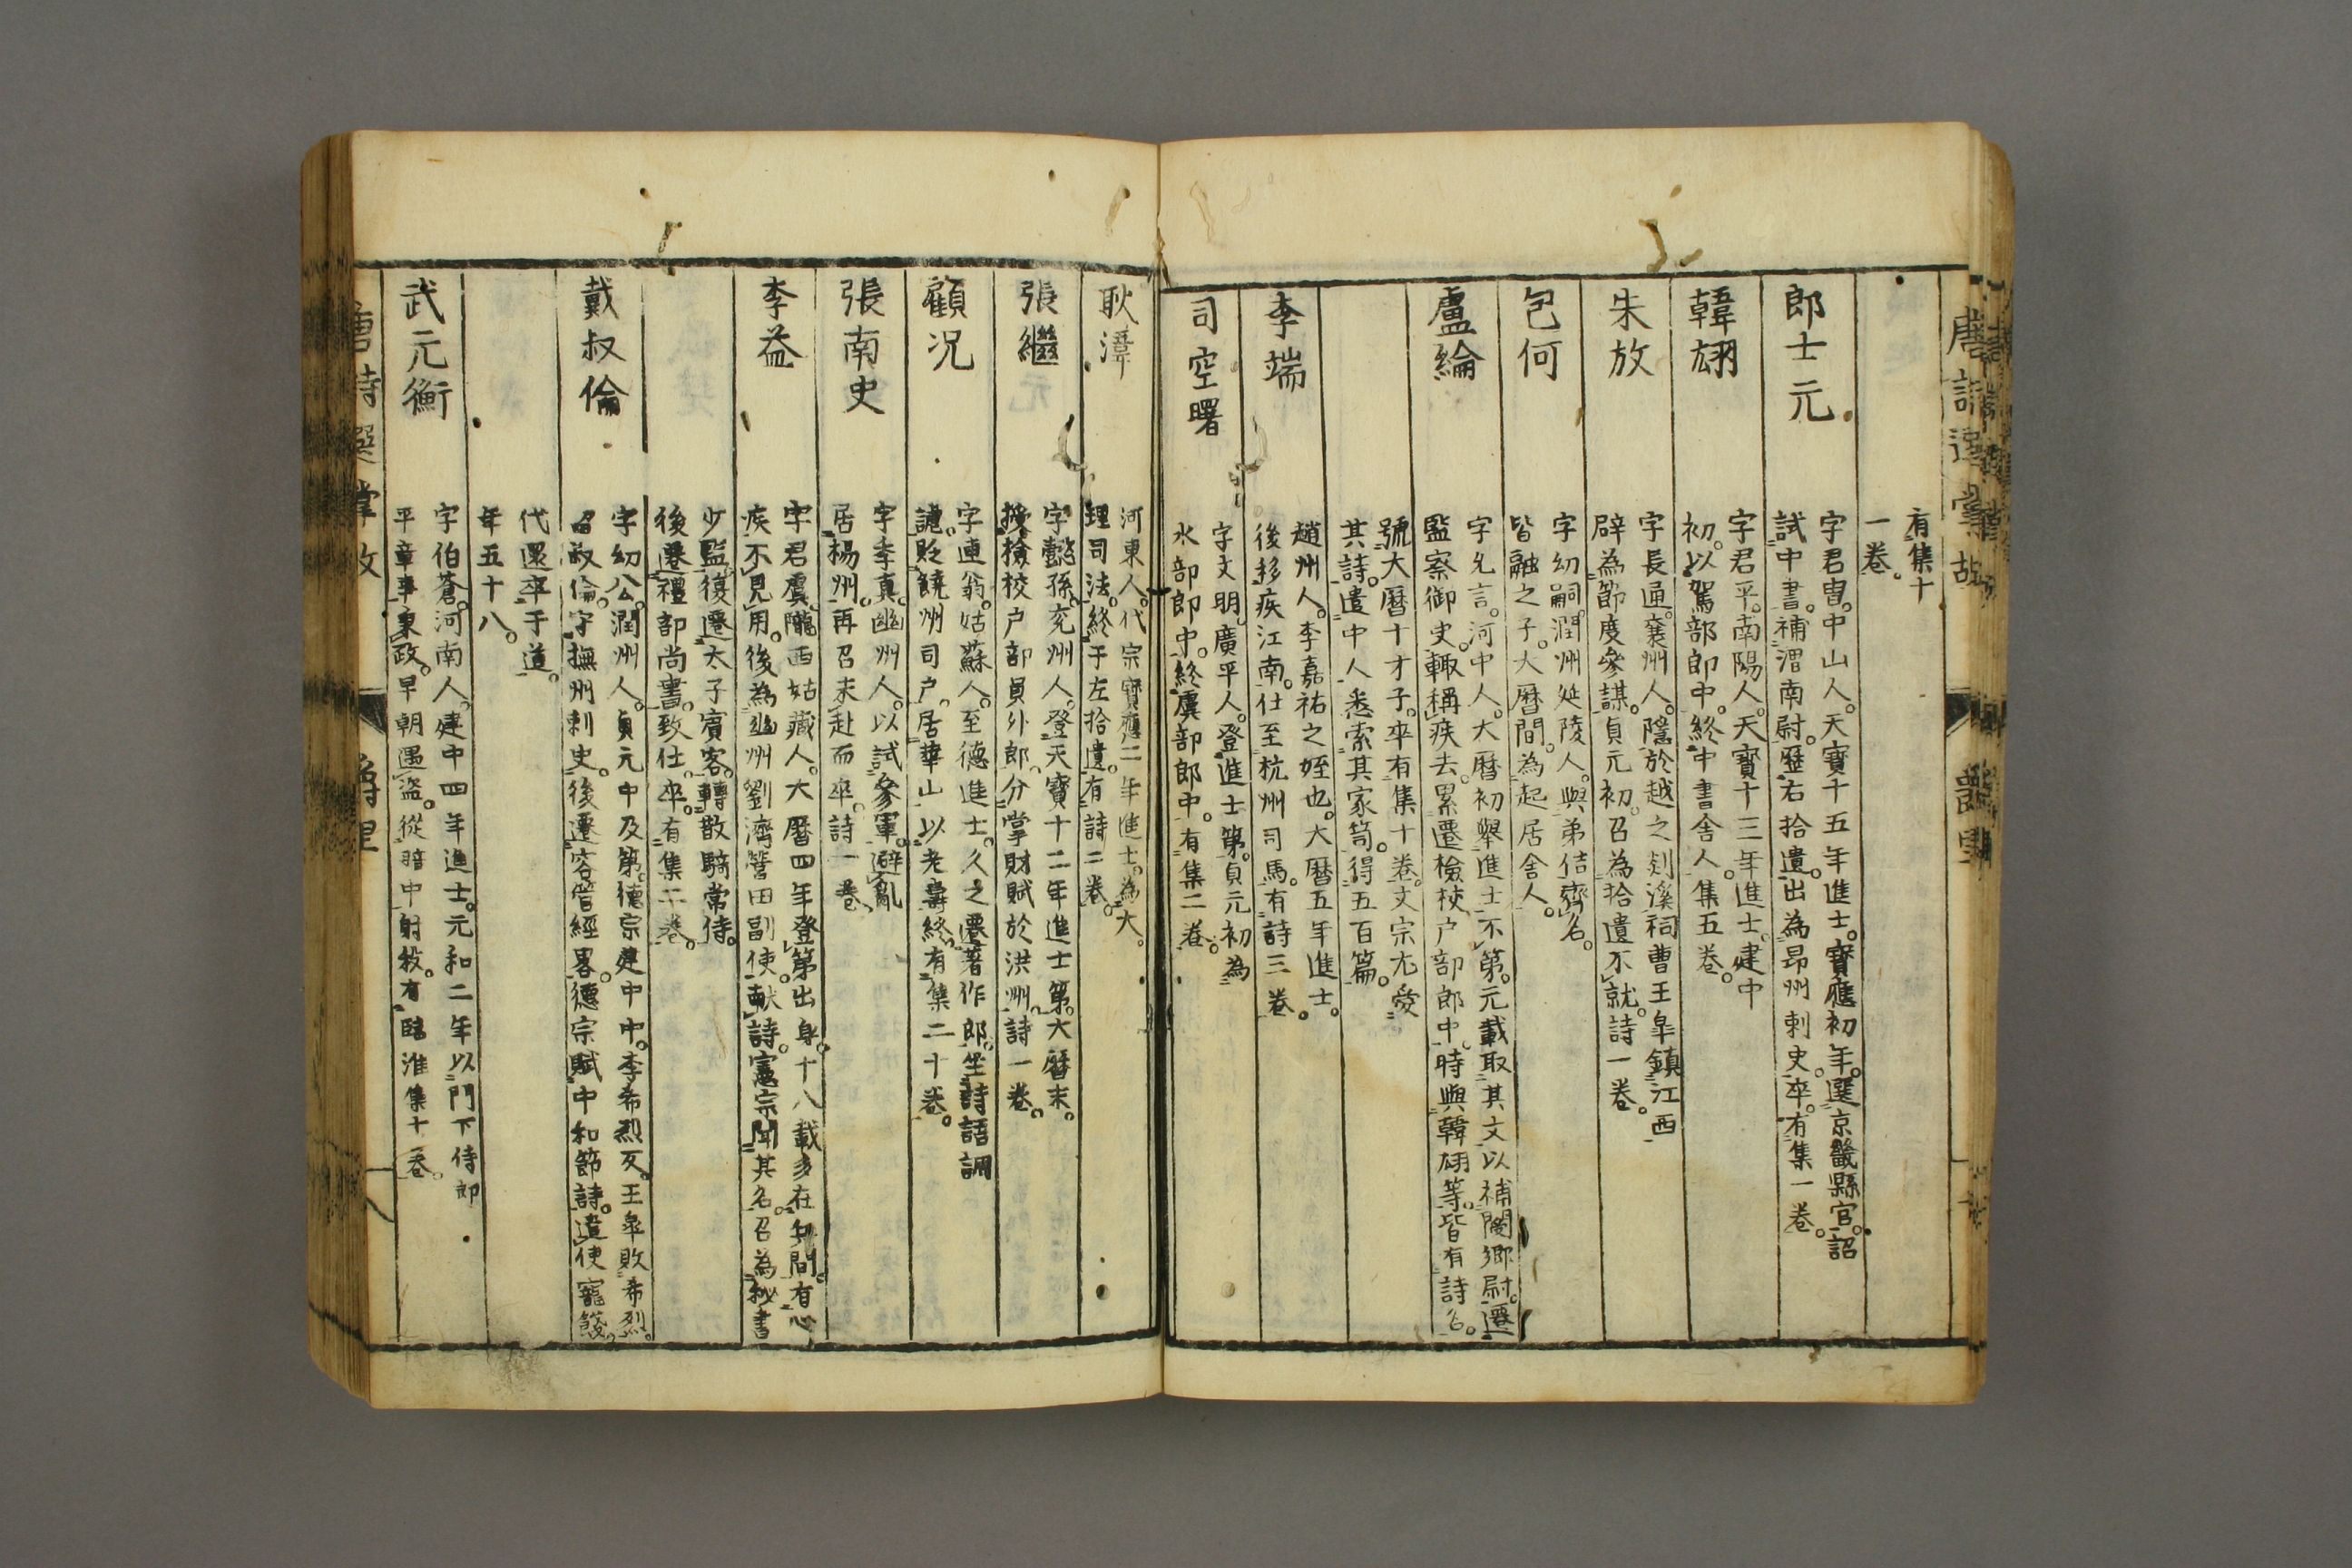 有集十
一卷。
郎士元
字君胄。中山人。天寶十五年進士。寶應初年。選京畿縣官。詔
試中書。補渭南尉。歷右拾遺。出為郢州刺史。卒。有集一卷。
韓翃
字君平。南陽人。天寶十三年進士。建中
初。以駕部郎中。終中書舍人。集五卷。
朱放
字長通。襄州人。隱於越之剡溪祠曹王皐鎮江西
辟為節度參謀。貞元初。召為拾遺不就。詩一卷。
包何
字幼嗣。潤州延陵人。與弟佶齊名。
皆融之子。大曆間。為起居舍人。
盧綸
字允言。河中人。大曆初舉進士不第。元載取其文以補閿鄉尉。遷
監察御史。輙稱疾去。累遷檢校户部郎中。時與韓翃等。皆有詩名。
號大曆十才子。卒有集十卷。文宗尤愛
其詩。遣中人悉索其家笥。得五百篇。
李端
趙州人。李嘉祐之姪也。大曆五年進士。
後移疾江南。仕至杭州司馬。有詩三卷。
司空曙
字文明。廣平人。登進士第。貞元初為
水部郎中。終虞部郎中。有集二卷。
耿湋
河東人。代宗寶應二年進士。為大
理司法。終于左拾遺。有詩二卷。
張繼
字懿孫。兖州人。登天寶十二年進士第。大曆末。
授檢校户部員外郎。分掌財賦於洪州。詩一卷。
顧况
字逋翁。姑蘇人。至德進士。久之遷著作郎。坐詩語調
謔。貶饒州司户。居華山以老壽終。有集二十卷。
張南史
字季真。幽州人。以試參軍。避亂
居楊州。再召未赴而卒。詩一卷。
李益
字君虞。隴西姑藏人。大曆四年登第。出身。十八載多在兵間。有心
疾不見用。後為幽州劉濟營田副使。献詩。憲宗聞其名。召為秘書
少監。復遷太子賓客。轉散騎常侍。
後遷禮部尚書。致仕。卒。有集二卷。
戴叔倫
字幼公。潤州人。貞元中及第。德宗建中中。李希烈反。王皐敗希烈。
留叔倫。守撫州刺史。後遷容管經畧。德宗賦中和節詩。遣使寵餞。
代還卒于道。
年五十八。
武元衡
字伯蒼。河南人。建中四年進士。元和二年以門下侍郎
平章事。秉政。早朝遇盗。從暗中射殺。有臨淮集十卷。
唐詩選掌故
爵里